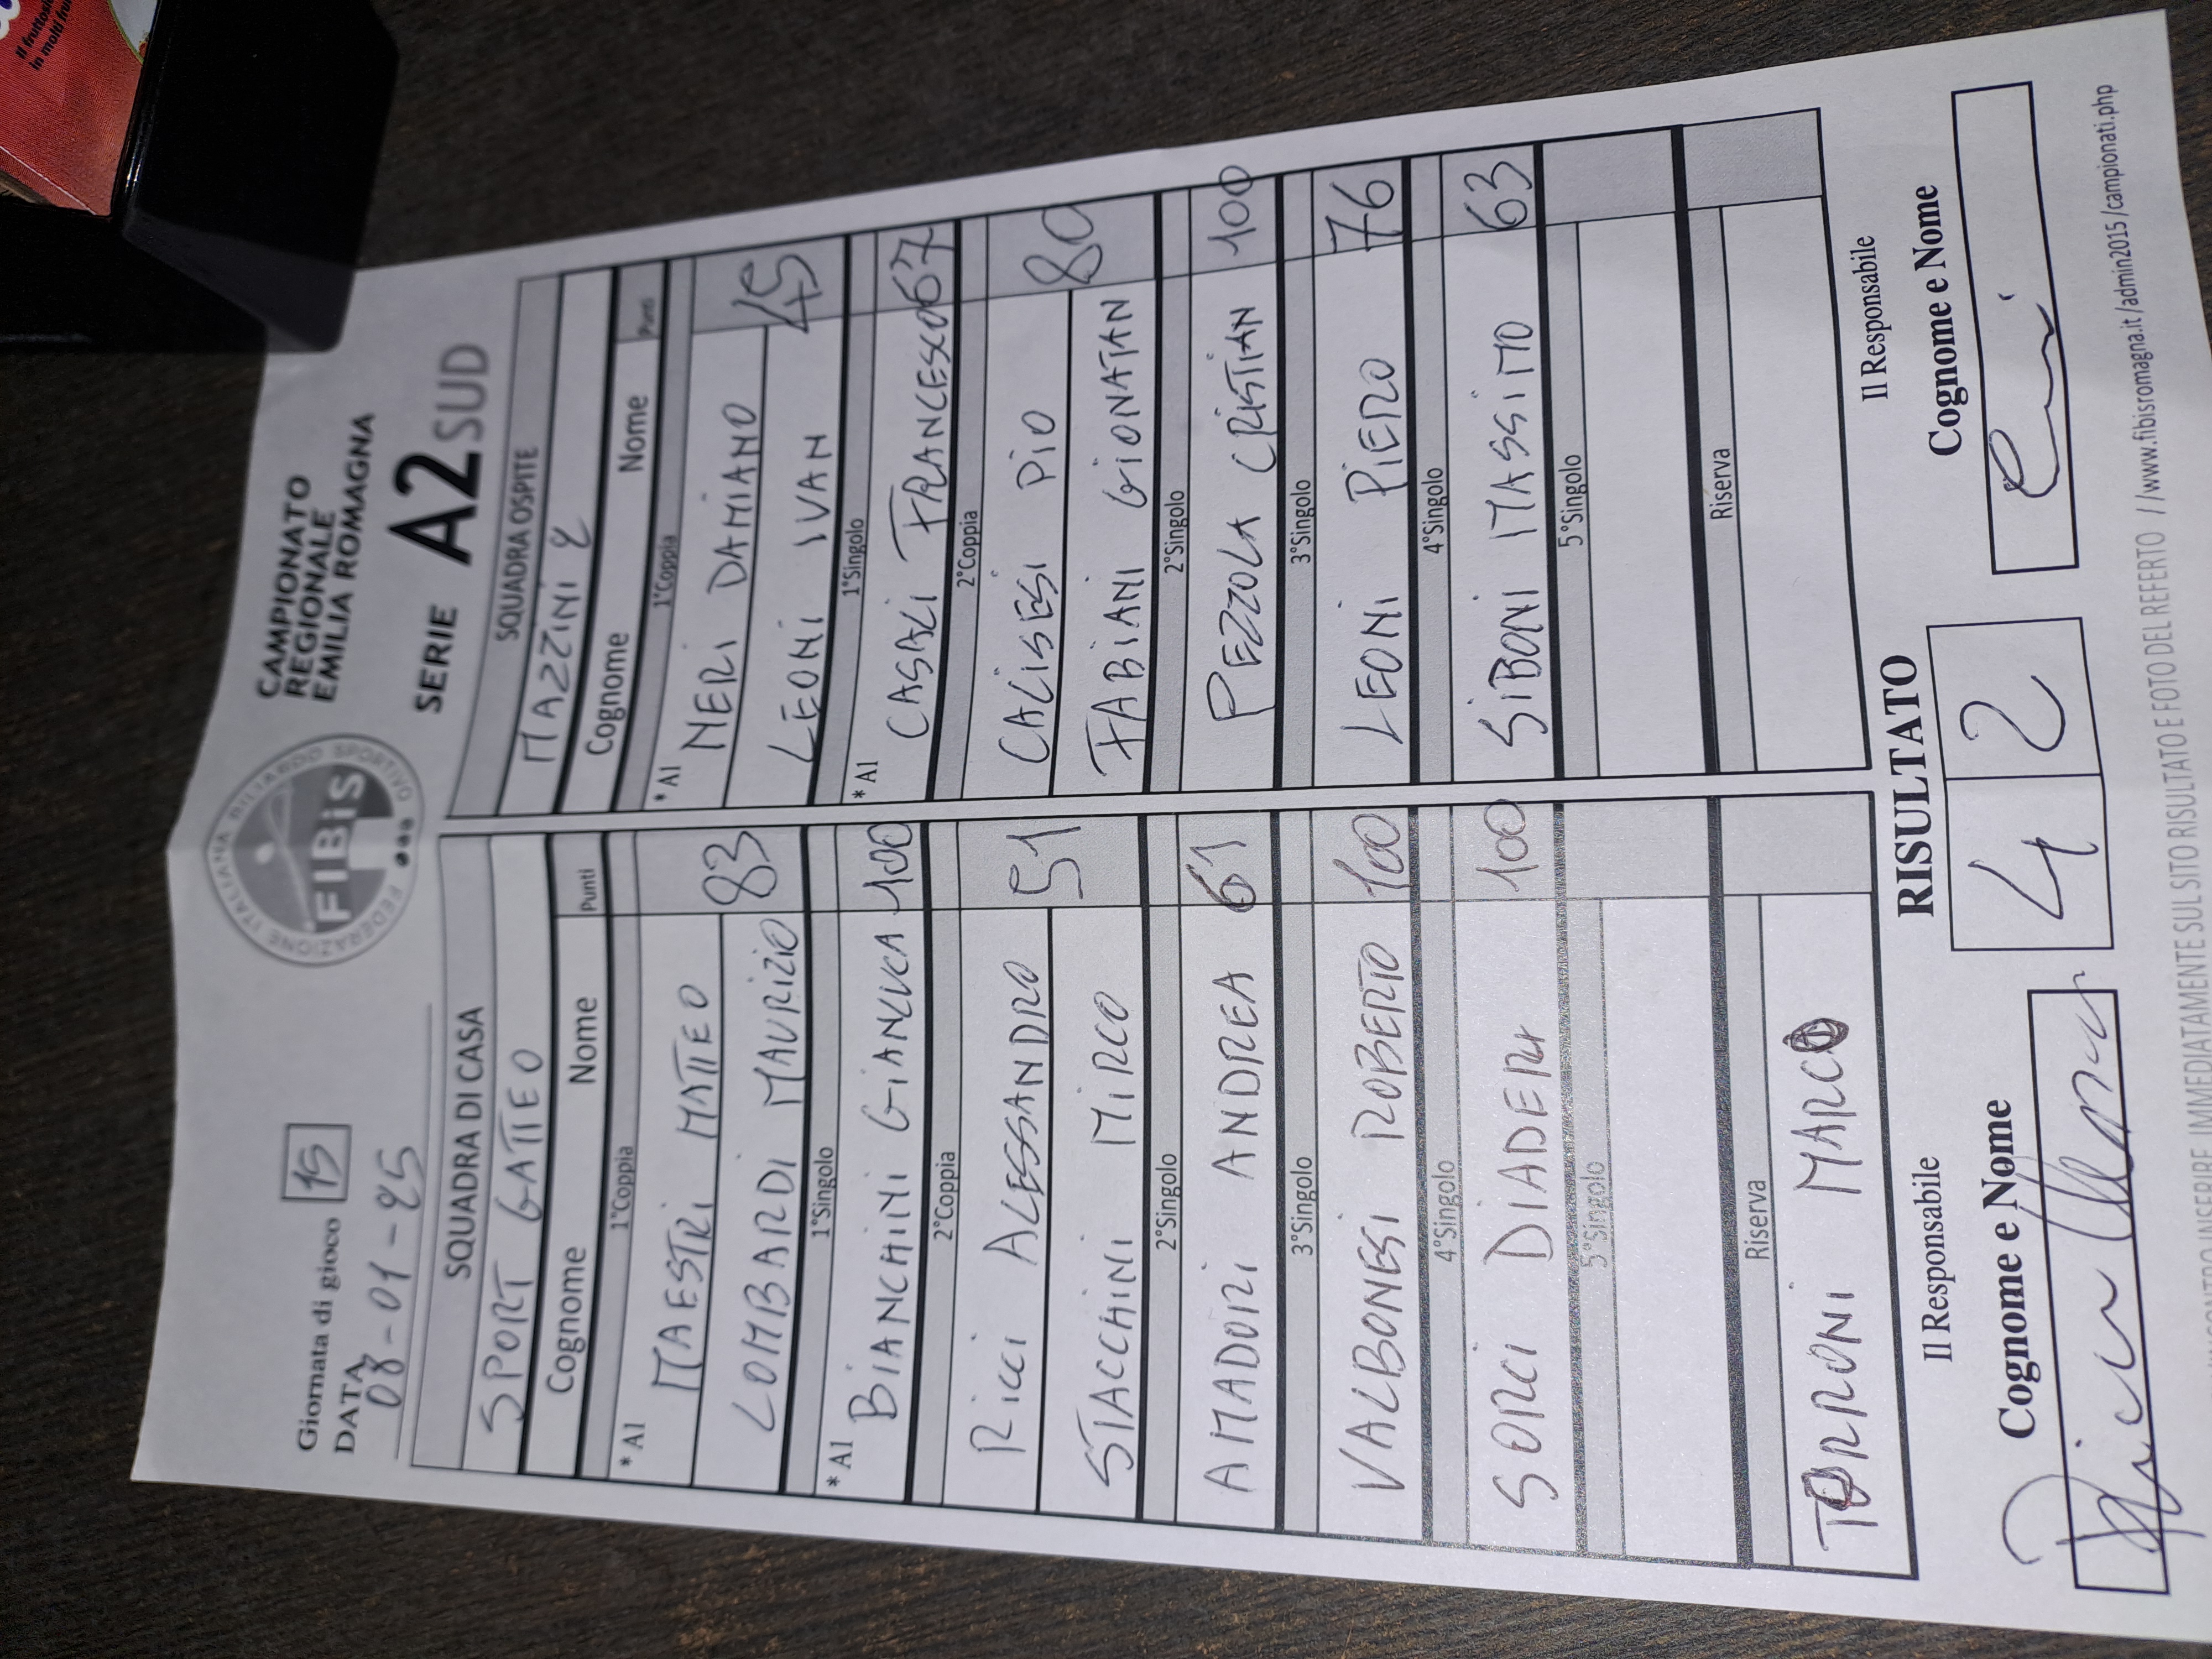 Il fruttosio
in molti fru
Giornata di gioco 15
DATA 08-01-25
FEDERAZIONE ITALIANA BILIARDO SPORTIVO
FIBiS
CAMPIONATO
REGIONALE
EMILIA ROMAGNA
SERIE A2 SUD
SQUADRA DI CASA
SPORT GATTEO
Cognome Nome Punti
1°Coppia
*A1 MAESTRI MATTEO
LOMBARDI MAURIZIO 83
1°Singolo
*A1 BIANCHINI GIANLUCA 100
2°Coppia
RICCI ALESSANDRO 51
STACCHINI MIRCO
2°Singolo
AMADORI ANDREA 61
3°Singolo
VALBONESI ROBERTO 100
4°Singolo
SORCI DIADER 100
5°Singolo
Riserva
TORRONI MARCO
SQUADRA OSPITE
MAZZINI 2
Cognome Nome Punti
1°Coppia
*A1 NERI DAMIANO 45
LEONI IVAN
1°Singolo
*A1 CASALI FRANCESCO 67
2°Coppia
CALISESI PIO 80
FABIANI GIONATAN
2°Singolo
PEZZOLA CRISTIAN 100
3°Singolo
LEONI PIERO 76
4°Singolo
SIBONI MASSIMO 63
5°Singolo
Riserva
Il Responsabile
Cognome e Nome
RISULTATO
4 2
Il Responsabile
Cognome e Nome
IMMEDIATAMENTE SUL SITO RISULTATO E FOTO DEL REFERTO //www.fibisromagna.it/admin2015/campionati.php